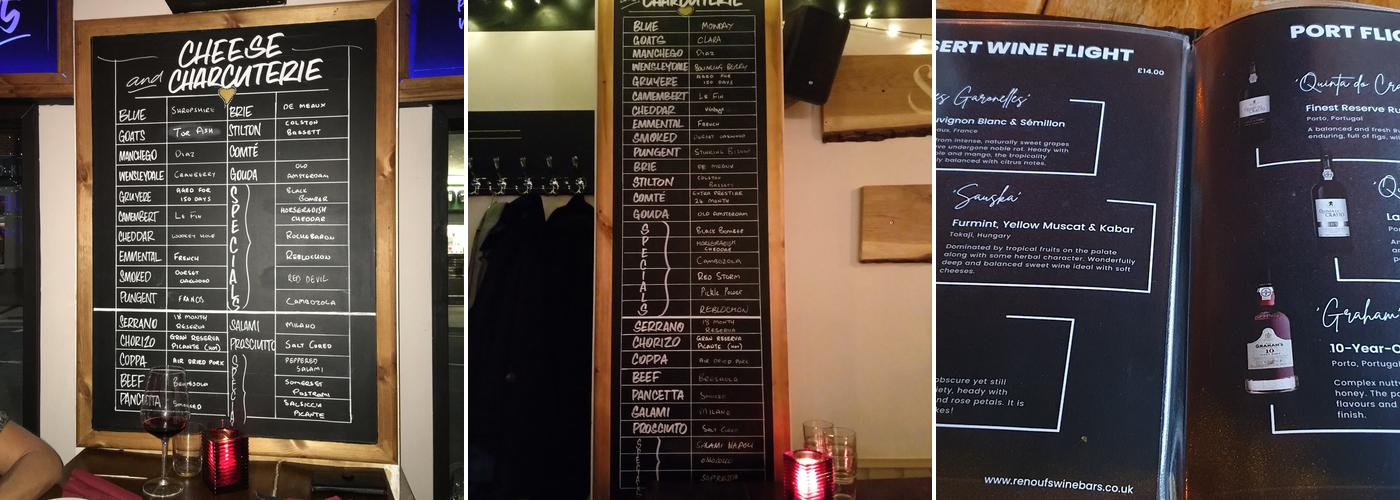 CHEESE
and CHARCUTERIE
BLUE SHROPSHIRE BRIE DE MEAUX
GOATS TOR ASH STILTON COLSTON BASSETT
MANCHEGO DIAZ COMTÉ
WENSLEYDALE CRANBERRY GOUDA OLD AMSTERDAM
GRUYERE AGED FOR 150 DAYS SPECIALS BLACK BOMBER
CAMEMBERT LE FIN HORSERADISH CHEDDAR
CHEDDAR WOOKEY HOLE ROCHEBARON
EMMENTAL FRENCH REBLOCHON
SMOKED DORSET OAKWOOD RED DEVIL
PUNGENT FRANCS CAMBOZOLA
SERRANO 18 MONTH RESERVA SALAMI MILANO
CHORIZO GRAN RESERVA PICANTE (HOT) PROSCIUTTO SALT CURED
COPPA AIR DRIED PORK PEPPERED SALAMI
BEEF SOMERSET PASTRAMI
PANCETTA SMOKED SALSICCIA PICANTE
CHARCUTERIE
BLUE MONDAY
GOATS CLARA
MANCHEGO DIAZ
WENSLEYDALE BOUNCING BERRY
GRUYERE AGED FOR 150 DAYS
CAMEMBERT LE FIN
CHEDDAR Vintage
EMMENTAL FRENCH
SMOKED DORSET OAKWOOD
PUNGENT STINKING BISHOP
BRIE DE MEAUX
STILTON COLSTON BASSETT
COMTÉ EXTRA PRESTIGE 24 MONTH
GOUDA OLD AMSTERDAM
SPECIALS BLACK BOMBER
HORSERADISH CHEDDAR
CAMBOZOLA
RED STORM
Pickle Power
REBLOCHON
SERRANO 18 MONTH RESERVA
CHORIZO GRAN RESERVA PICANTE (HOT)
COPPA AIR DRIED PORK
BEEF BRESAOLA
PANCETTA SMOKED
SALAMI MILANO
PROSCIUTTO SALT CURED
SALAMI NAPOLI
S
ERT WINE FLIGHT
£14.00
es Garonelles'
uvignon Blanc & Sémillon
aux, France
from intense, naturally sweet grapes
ve undergone noble rot. Heady with
ple and mango, the tropicality
ly balanced with citrus notes.
'Sauska'
Furmint, Yellow Muscat & Kabar
Tokaji, Hungary
Dominated by tropical fruits on the palate
along with some herbal character. Wonderfully
deep and balanced sweet wine ideal with soft
cheeses.
obscure yet still
riety, heady with
and rose petals. It is
kes!
www.renoufswinebars.co.uk
PORT FLIG
'Quinta do Cra
Finest Reserve Ru
Porto, Portugal
A balanced and fresh
enduring, full of figs, wi
'Q
La
Por
'Graham'
10-Year-O
Porto, Portugal
Complex nutt
honey. The pa
flavours and
finish.
GRAHAM'S
10